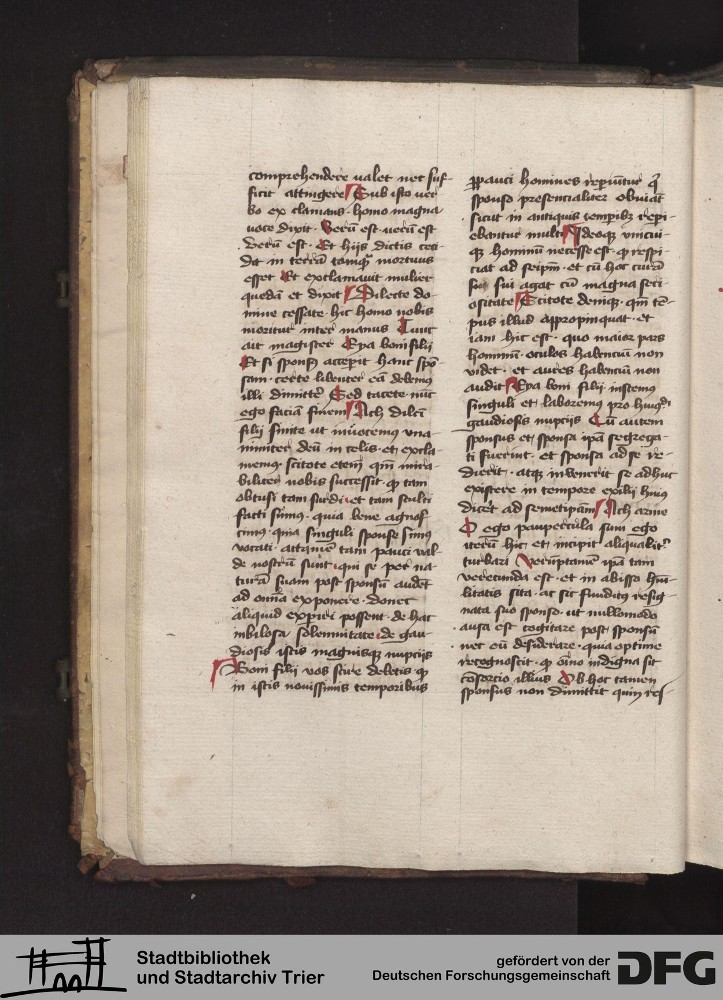 comprehendere valet nec suf-
ficit attingere Sub isto ver
bo ex clamans homo magna
voce dixit. Verū est verū est
verū est. Et hijs dictis ceci
dit in terrā tamqᷓ mortuus
esset Et exclamavit mulier
quedā et dixit Dilecte do-
mine cessate. hic homo nobis
moritur inter manus Tunc
ait magister Xpa boni filij
Et si sponsꝯ acceperit hanc spō-
sam. certe libenter eā debemus
illi dimittere Sed tacete nūc
ego faciā finem Ach dilcī
filij finite ut invocemus una-
nimiter deū in celis. et excla
memus scitote etem̄ qm̄ mira-
biliter nobis successit. ꝙ tam
obtusi tam surdi. et tam stulti
facti sumꝯ. quia bene agnos-
cimꝯ. quia singuli sponse sumꝯ
vocati. attamē tam pauci val-
de nostrū sunt. qui se per na-
turā suam post sponsū audēt
ad omīa exponere. donec
aliquid expiri possent. de hac
iubilosa solennitate. de gau
diosis istis magnisqꝫ nupcijs
Boni filij vos scire debetis ꝙ
in istis novissimis temporibus
ꝑpauci homines repiūtur qͥ
sponso presencialiter obviāt
sicut in antiquis temporibꝫ repi-
ebantur multi Ideoqꝫ unicui-
qꝫ hominū necesse est. ꝙ respi-
ciat ad seipm̄. et cū hoc curā
sui agat cū magna seri
ositate Scitote deniqꝫ. qm̄ tē-
pus illud appropinquat. et
iam hic est. quo maior pars
hominū. oculos habenciū non
videt. et aures habenciū non
audit Xpa boni filij instemꝯ
singuli et laboremus pro huꝯ
gaudiosis nupcijs Cū autem
sponsus et sponsa ipā segrega-
ti fuerint. et sponsa ad se re-
dierit. atqꝫ invenerit se adhuc
existere in tempore exilij huiꝯ
dicet ad semetipam Ach arme
O ego paupercula sum ego
iterū hic et incipit aliqualitˀ
turbari Veruptamē ipā tam
verecunda est. et in abisso hu-
litatis sita. ac sic funditꝯ resig-
nata suo sponso. ut nullomodo
ausa est cogitare post sponsū
nec eū desiderare. quia optime
recognoscit. ꝙ oīno indigna sit
cōsorcio illius Ob hoc tamen
sponsus non dimittit quin res-
Stadtbibliothek
und Stadtarchiv Trier
gefördert von der
Deutschen Forschungsgemeinschaft
DFG